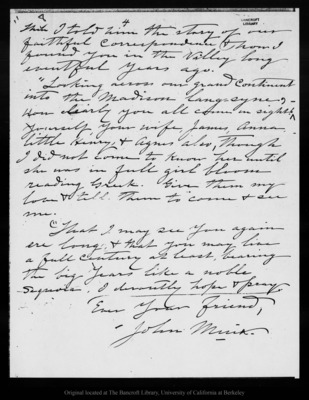 4
BANCROFT
LIBRARY
this I told him the story of our
faithful correspondence & how I
found you in the Valley long
eventful years ago.
"Looking across our grand Continent
into the Madison langsyne,
how clearly you all come in sight,
Yourself, Your wife, James, Anna,
little Henry, & Agnes also, though
I did not come to know her until
she was in full girl bloom
reading Greek. Give them my
love & tell them to come & see
me.
"That I may see you again
ere long, & that you may live
a full century at least, bearing
the big years like a noble
Sequoia, I devoutly hope & pray.
Ever Your friend,
"John Muir.
Original located at The Bancroft Library, University of California at Berkeley